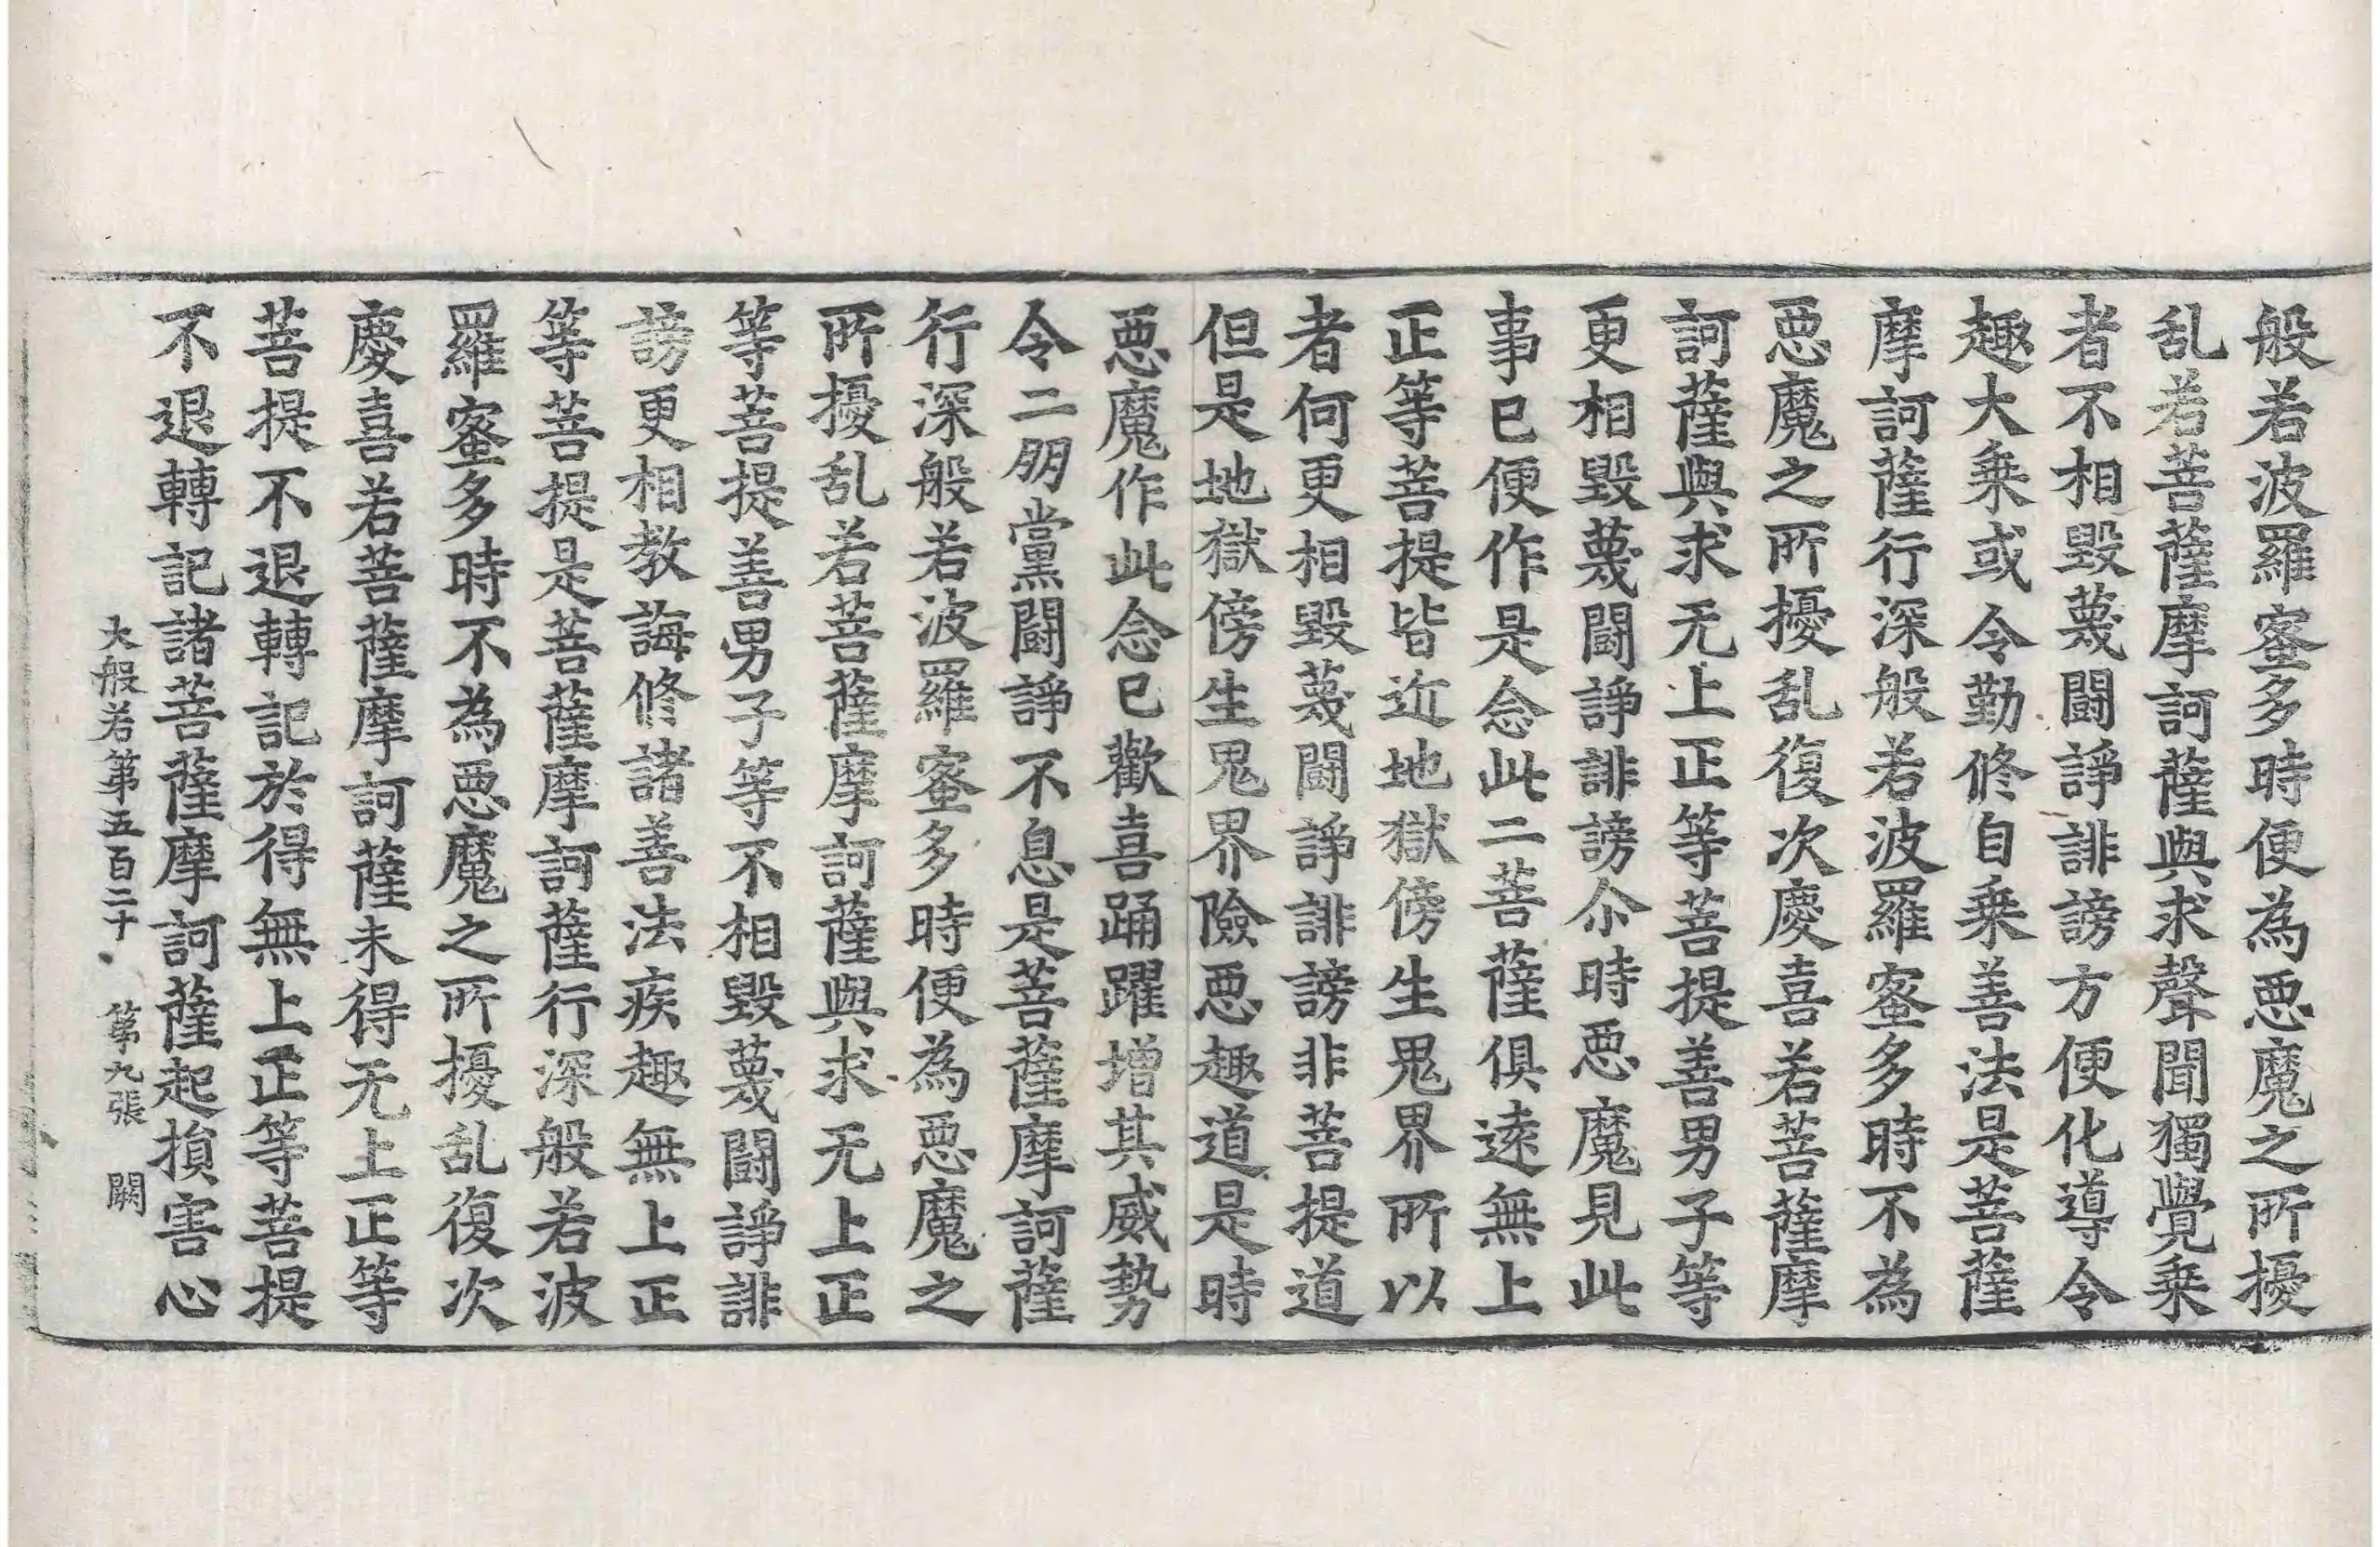 般若波羅蜜多時便為惡魔之所擾
乱若菩薩摩訶薩與求聲聞獨覺乗
者不相毀蔑鬪諍誹謗方便化導令
趣大乗或令勤修自乗善法是菩薩
摩訶薩行深般若波羅蜜多時不為
惡魔之所擾乱復次慶喜若菩薩摩
訶薩與求无上正等菩提善男子等
更相毀蔑鬪諍誹謗尒時惡魔見此
事已便作是念此二菩薩俱遠無上
正等菩提皆近地獄傍生鬼界所以
者何更相毀蔑鬪諍誹謗非菩提道
但是地獄傍生鬼界險惡趣道是時
惡魔作此念已歡喜踊躍增其威勢
令二朋黨鬪諍不息是菩薩摩訶薩
行深般若波羅蜜多時便為惡魔之
所擾乱若菩薩摩訶薩與求无上正
等菩提善男子等不相毀蔑鬪諍誹
謗更相教誨修諸善法疾趣無上正
等菩提是菩薩摩訶薩行深般若波
羅蜜多時不為惡魔之所擾乱復次
慶喜若菩薩摩訶薩未得无上正等
菩提不退轉記於得無上正等菩提
不退轉記諸菩薩摩訶薩起損害心
大般若第五百二十 第九張 闕